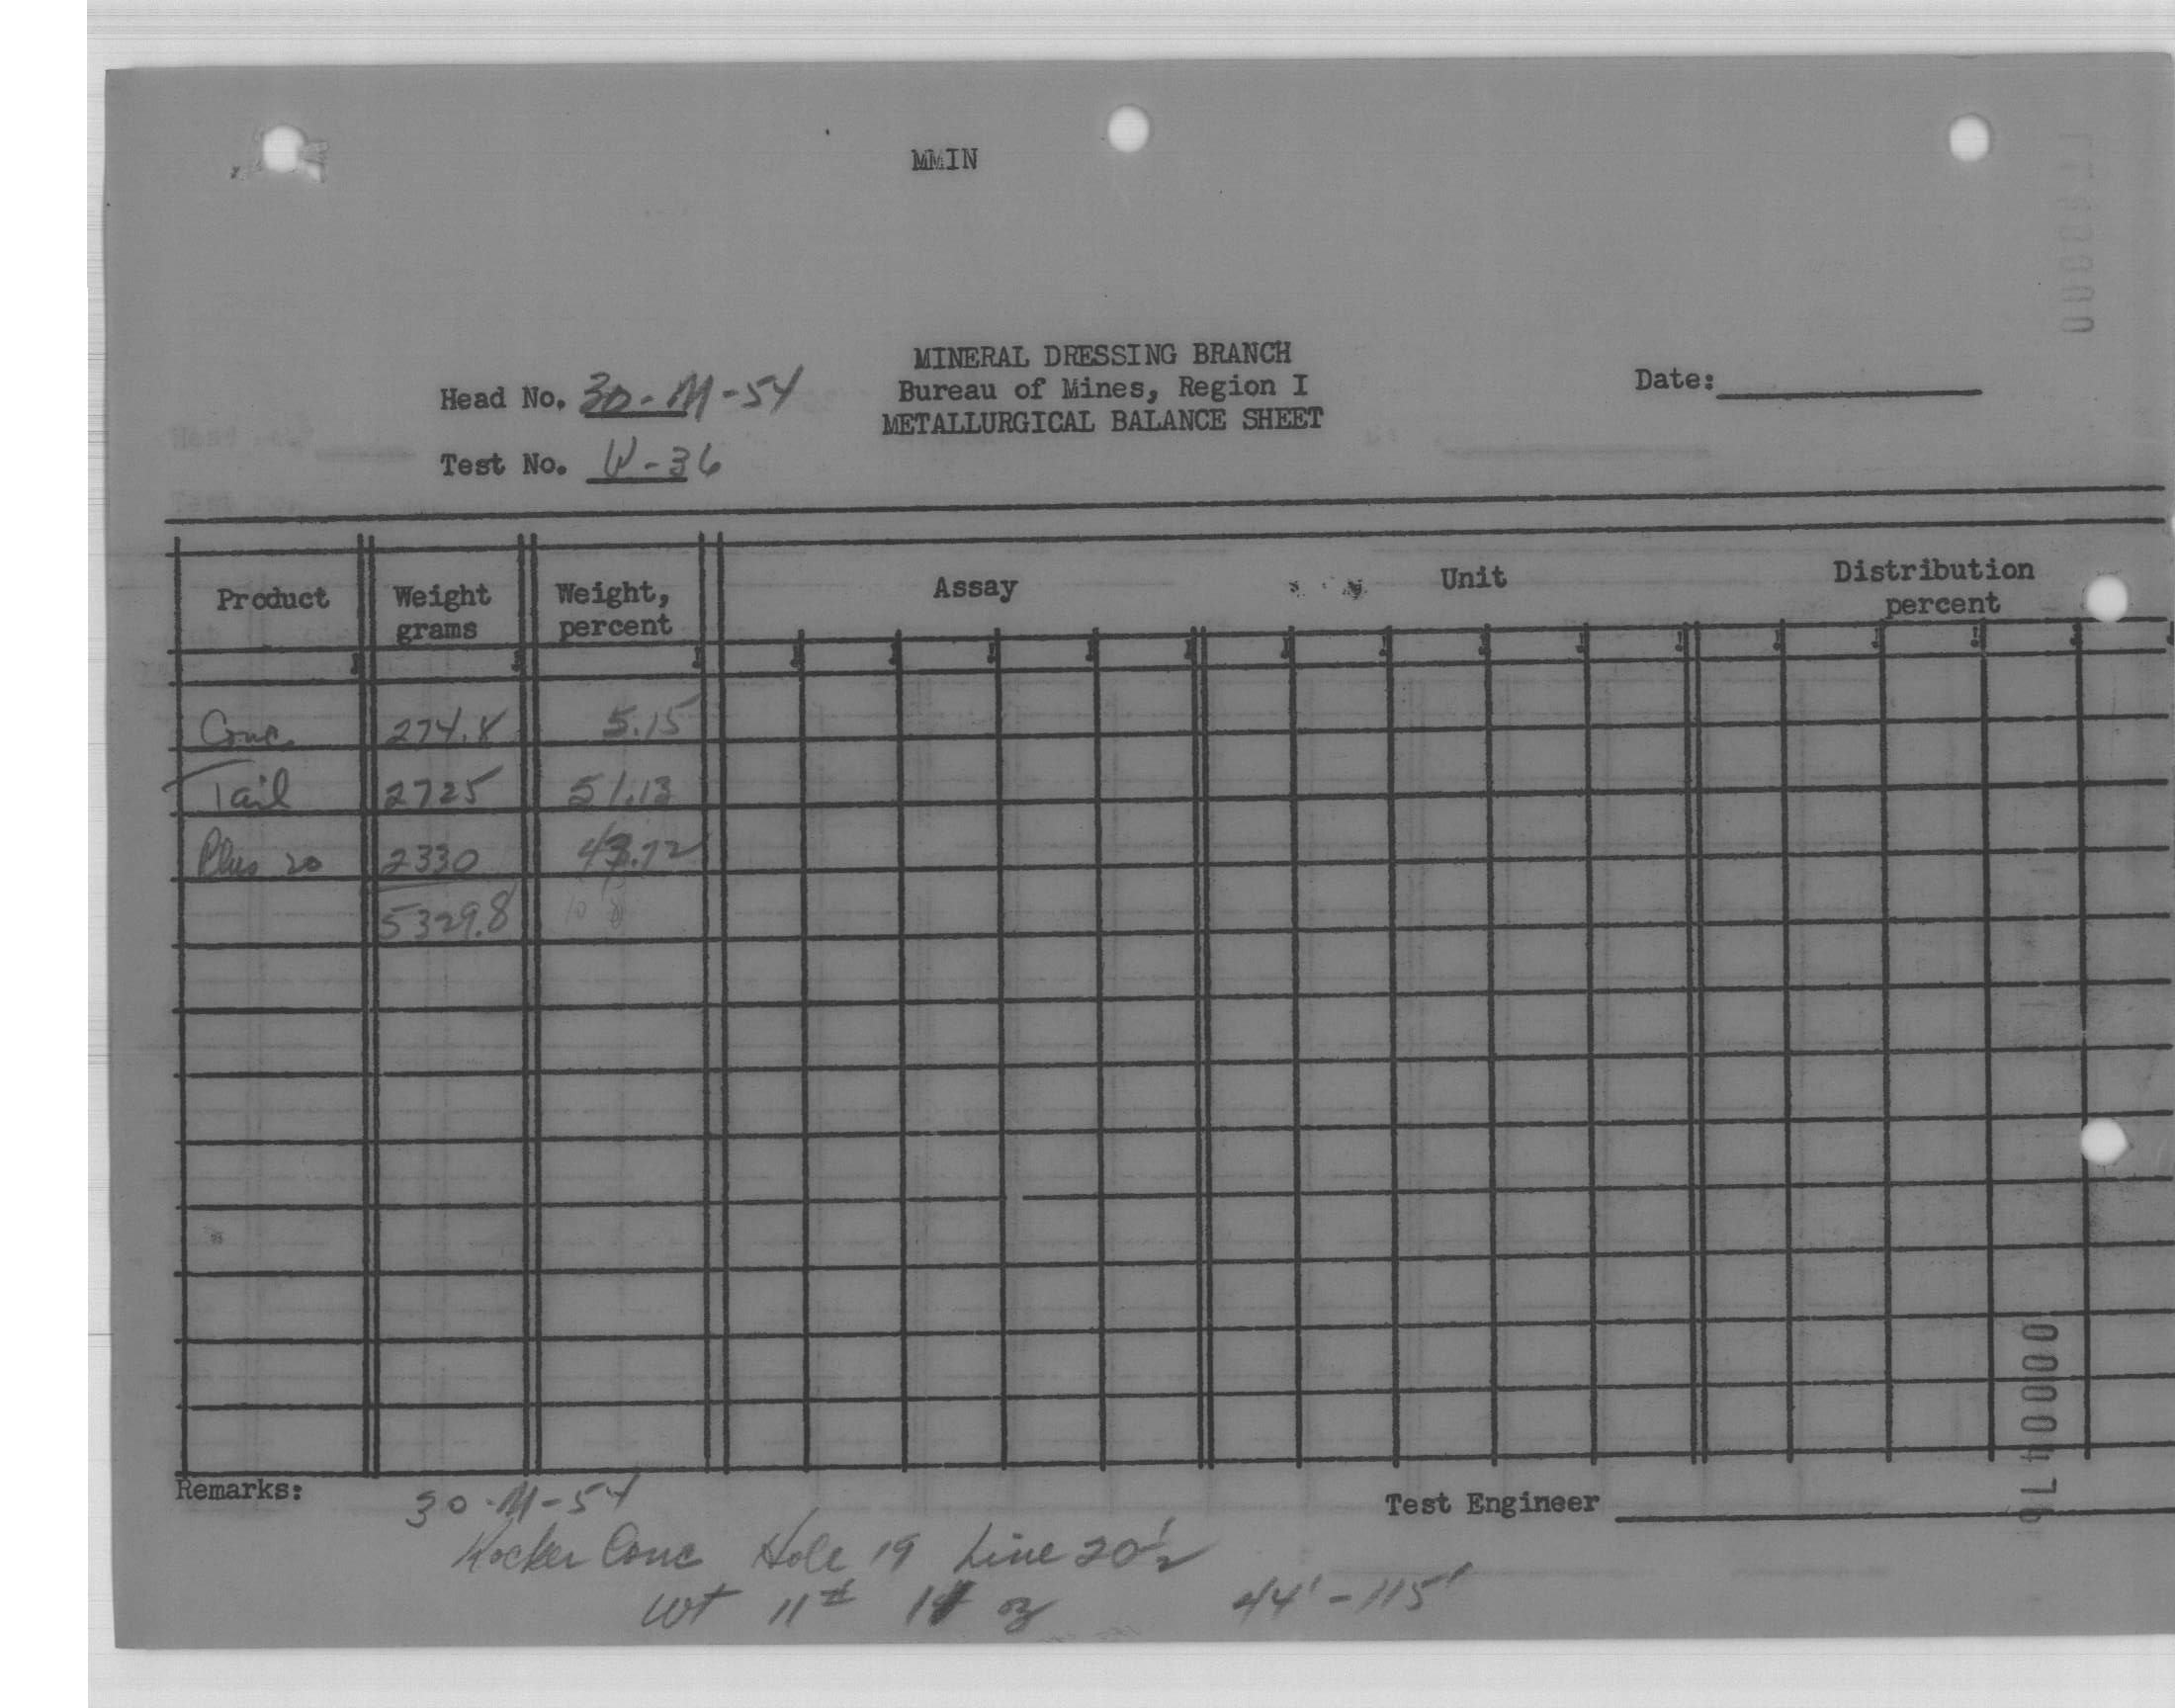 MMIN
MINERAL DRESSING BRANCH
Bureau of Mines, Region I
METALLURGICAL BALANCE SHEET
Head No. 30-M-54
Test No. W-36
Date:
Product Weight grams Weight, percent Assay Unit Distribution percent
Conc 274.8 5.15
Tail 2725 51.13
Plus 20 2330 43.72
5329.8
Remarks:
30-M-54
Test Engineer
Rocker Conc Hole 19 Line 20½
wt 11# oz 44'-115'
0000476